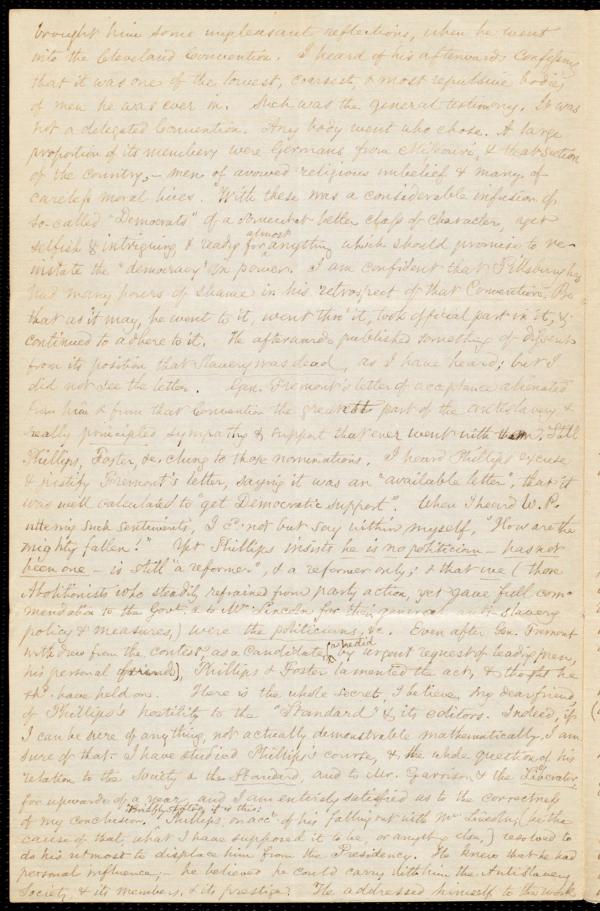 brought him some unpleasant reflections, when he went
into the Cleveland Convention. I heard of his afterwards confessing
that it was one of the lowest, coarsest, & most repulsive bodies
of men he was ever in. Such was the general testimony. It was
not a delegated Convention. Any body went who chose. A large
proportion of its members were Germans from Missouri, & that section
of the country, – men of avowed religious unbelief & many of
careless moral lives. With these was a considerable infusion of
so-called "Democrats" of a somewhat better class of character, yet
selfish & intriguing, & ready almost for anything which should promise to re-
instate the "democracy" in power. I am confident that Pillsbury has
had many hours of shame in his retrospect of that Convention. Be
that as it may, he went to it, went thro' it, took official part in it, &
continued to adhere to it. He afterwards published something of dissent
from its position that Slavery was dead, as I have heard; but I
did not see the letter. Gen. Fremont's letter of acceptance alienated
from him & from that Convention the greatest part of the antislavery &
really principled sympathy & support that ever went with them. Still
Phillips, Foster, &c. clung to those nominations. I heard Phillips excuse
& justify Fremont's letter, saying it was an "available letter", that it
was well calculated to "get Democratic support". When I heard W. P.
uttering such sentiments, I cd. not but say within myself, "How are the
mighty fallen!" Yet Phillips insists he is no politician – has not
been one – is still "a reformer", & a reformer only; & that we (those
Abolitionists who steadily refrained from party action, yet gave full com-
mendation to the Govt. & to Mr. Lincoln for their general anti-slavery
policy & measures,) were the politicians, &c. Even after Gen. Fremont
withdrew from the contest, as a Candidate, (by urgent request of leading men,
his personal friends), Phillips & Foster lamented the act, & thought he
shd. have held on. There is the whole secret, I believe, my dear friend,
of Phillips's hostility to the "Standard" & its editors. Indeed, if
I can be sure of anything, not actually demonstrable mathematically, I am
sure of that. I have studied Phillips's course, & the whole question of his
relation to the Society & the Standard, and to Mr. Garrison & the Liberator,
for upwards of a year, and I am entirely satisfied as to the correctness
of my conclusion. Phillips, on acct. of his falling out with Mr. Lincoln, (be the
cause of that, what I have supposed it to be, or anything else,) resolved to
do his utmost to displace him from the Presidency. He knew that he had
personal influence, – he believed he could carry with him the Antislavery
Society, & its members, & its prestige. He addressed himself to the work